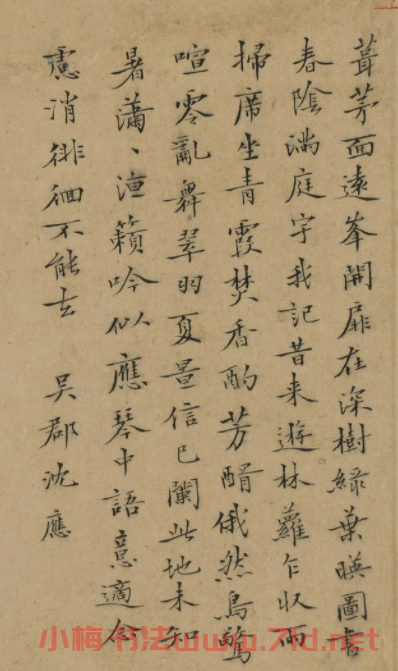 葺茅面遠峯開扉在深樹綠葉暎圖書
春陰滿庭宇我記昔来遊林蘿乍収雨
掃席坐青霞焚香酌芳醑俄然鳥鵲
喧零亂舞翠羽夏景信已闌此地未知
暑瀟〻洎籟吟似應琴中語意適念
慮消徘徊不能去 吳郡沈應
小梅书法www.7ld.net